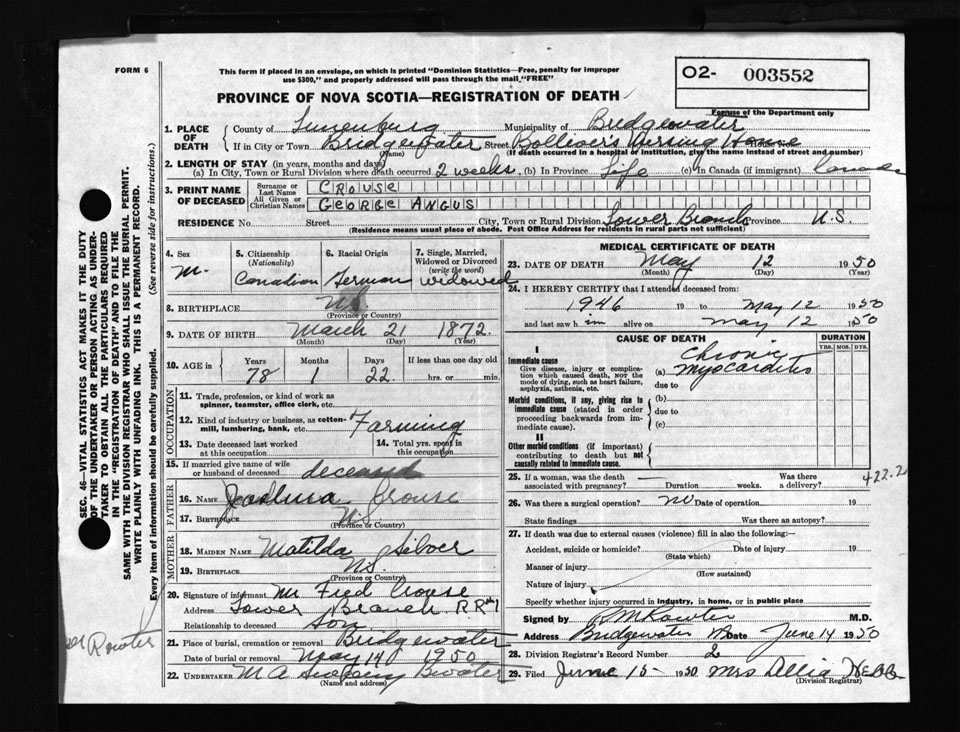 FORM 6
This form if placed in an envelope, on which is printed "Dominion Statistics—Free, penalty for improper
use $300," and properly addressed will pass through the mail "FREE"
O2- 003552
For use of the Department only
PROVINCE OF NOVA SCOTIA—REGISTRATION OF DEATH
1. PLACE OF DEATH
County of Lunenburg Municipality of Bridgewater
If in City or Town Bridgewater Street Nursing Home House No.
(Name) (If death occurred in a hospital or institution, give the name instead of street and number)
2. LENGTH OF STAY (in years, months and days)
(a) In City, Town or Rural Division where death occurred 2 weeks (b) In Province Life (c) In Canada (if immigrant) Canada
3. PRINT NAME OF DECEASED
Surname or Last Name CROUSE
All Given or Christian Names GEORGE ANGUS
RESIDENCE No. Street City, Town or Rural Division Lower Branch Province N.S.
(Residence means usual place of abode. Post Office Address for residents in rural parts not sufficient)
4. Sex M.
5. Citizenship (Nationality) Canadian
6. Racial Origin German
7. Single, Married, Widowed or Divorced (write the word) widowed
8. BIRTHPLACE N.S.
(Province or Country)
9. DATE OF BIRTH March 21 1872.
(Month) (Day) (Year)
10. AGE in Years Months Days If less than one day old
78 1 22. hrs. or min.
OCCUPATION
11. Trade, profession, or kind of work as
spinner, teamster, office clerk, etc.
12. Kind of industry or business, as cotton-
mill, lumbering, bank, etc. Farming
13. Date deceased last worked
at this occupation
14. Total yrs. spent in
this occupation
15. If married give name of wife
or husband of deceased deceased
FATHER
16. NAME Joshua Crouse
17. BIRTHPLACE N.S.
(Province or Country)
MOTHER
18. MAIDEN NAME Matilda Silver
19. BIRTHPLACE N.S.
(Province or Country)
20. Signature of informant Mr Fred Crouse
Address Lower Branch RR#1
Relationship to deceased Son
21. Place of burial, cremation or removal Bridgewater
Date of burial or removal May 14 1950
22. UNDERTAKER M A Bwater
(Name and address)
MEDICAL CERTIFICATE OF DEATH
23. DATE OF DEATH May 12 1950
(Month) (Day) (Year)
24. I HEREBY CERTIFY that I attended deceased from:
1946 19 to May 12 1950
and last saw him alive on May 12 1950
CAUSE OF DEATH
DURATION
YRS. MOS. DYS.
I
Immediate cause
Give disease, injury or complica-
tion which caused death, not the
mode of dying, such as heart failure,
asphyxia, asthenia, etc.
(a) Chronic Myocarditis
due to
Morbid conditions, if any, giving rise to
immediate cause (stated in order
proceeding backwards from im-
mediate cause).
(b)
due to
(c)
II
Other morbid conditions (if important)
contributing to death but not
causally related to immediate cause.
25. If a woman, was the death Was there
associated with pregnancy? Duration weeks. a delivery?
422.2
26. Was there a surgical operation? no Date of operation 19
State findings Was there an autopsy?
27. If death was due to external causes (violence) fill in also the following:—
Accident, suicide or homicide? Date of injury 19
(State which)
Manner of injury
(How sustained)
Nature of injury
Specify whether injury occurred in industry, in home, or in public place
Signed by M.D.
Address Bridgewater NS Date June 14 1950
28. Division Registrar's Record Number 2
29. Filed June 15- 1950 Mrs Webb
(Division Registrar)
SEC. 46—VITAL STATISTICS ACT MAKES IT THE DUTY
OF THE UNDERTAKER OR PERSON ACTING AS UNDER-
TAKER TO OBTAIN ALL THE PARTICULARS REQUIRED
IN THE "REGISTRATION OF DEATH" AND TO FILE THE
SAME WITH THE DIVISION REGISTRAR WHO SHALL ISSUE THE BURIAL PERMIT.
WRITE PLAINLY WITH UNFADING INK. THIS IS A PERMANENT RECORD.
Every item of information should be carefully supplied. (See reverse side for instructions.)